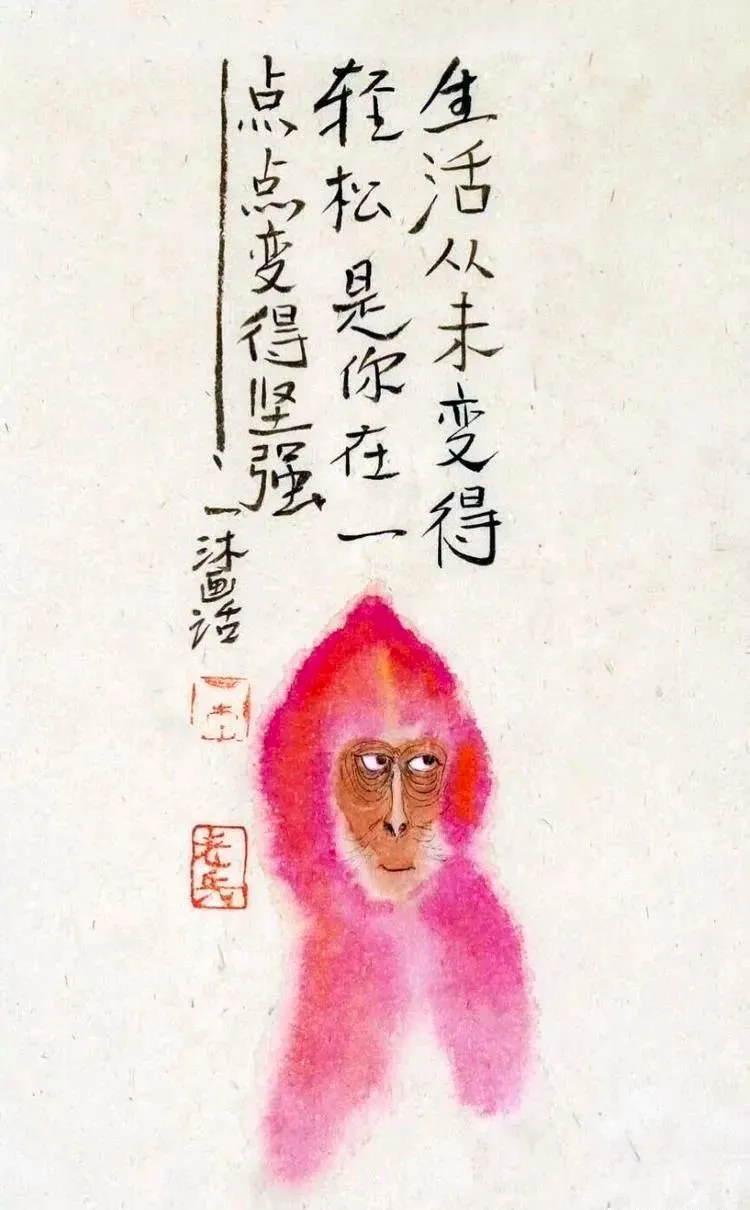 生活从未变得
轻松是你在一
点点变得坚强
一沐画话
老兵